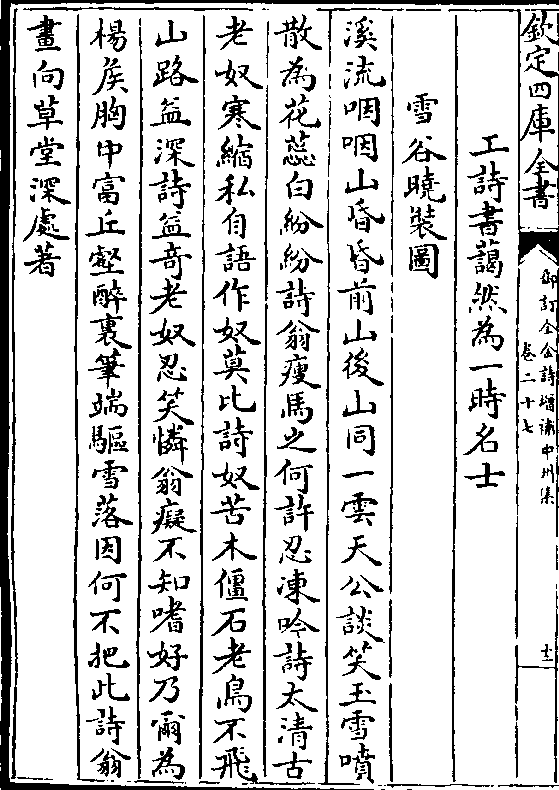 欽定四庫全書
御訂全金詩增補中州集
卷二十七
十二
工詩書藹然為一時名士
雪谷曉裝圖
溪流咽咽山昏昏前山後山同一雲天公談笑玉雪噴
散為花蕊白紛紛詩翁瘦馬之何許忍凍吟詩太清古
老奴寒縮私自語作奴莫比詩奴苦木僵石老鳥不飛
山路益深詩益奇老奴忍笑憐翁癡不知嗜好乃爾為
楊矦胸中富丘壑醉裏筆端驅雪落因何不把此詩翁
畫向草堂深處著